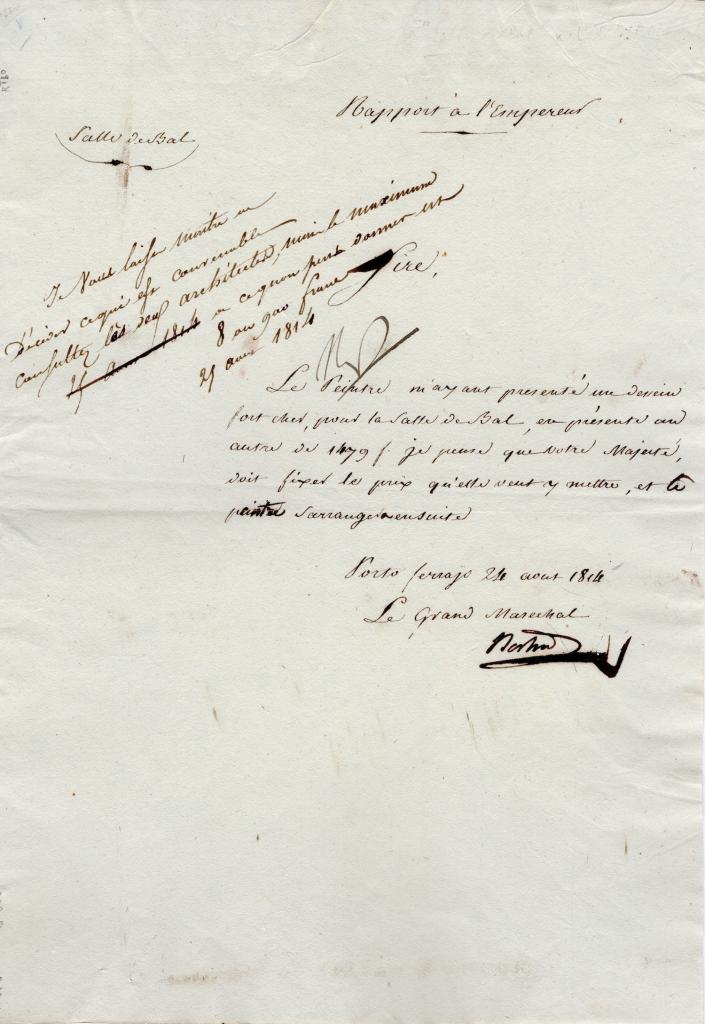 Rapport à l'Empereur
Salle de Bal
Je Vous laisse maître de
décider ce qui est convenable
consultez les deux architectes, mais le maximum
25 aout 1814 de ce qu'on peut donner est
8 ou 900 francs
25 aout 1814
Sire,
Le Peintre m'ayant presenté un dessein
fort cher, pour la Salle de Bal, en présente un
autre de 1479 f. je pense que Votre Majesté,
doit fixer le prix qu'elle veut y mettre, et le
peintre Sarrangera ensuite
Porto ferrajo 24 aout 1814
Le Grand Marechal
Bertrand